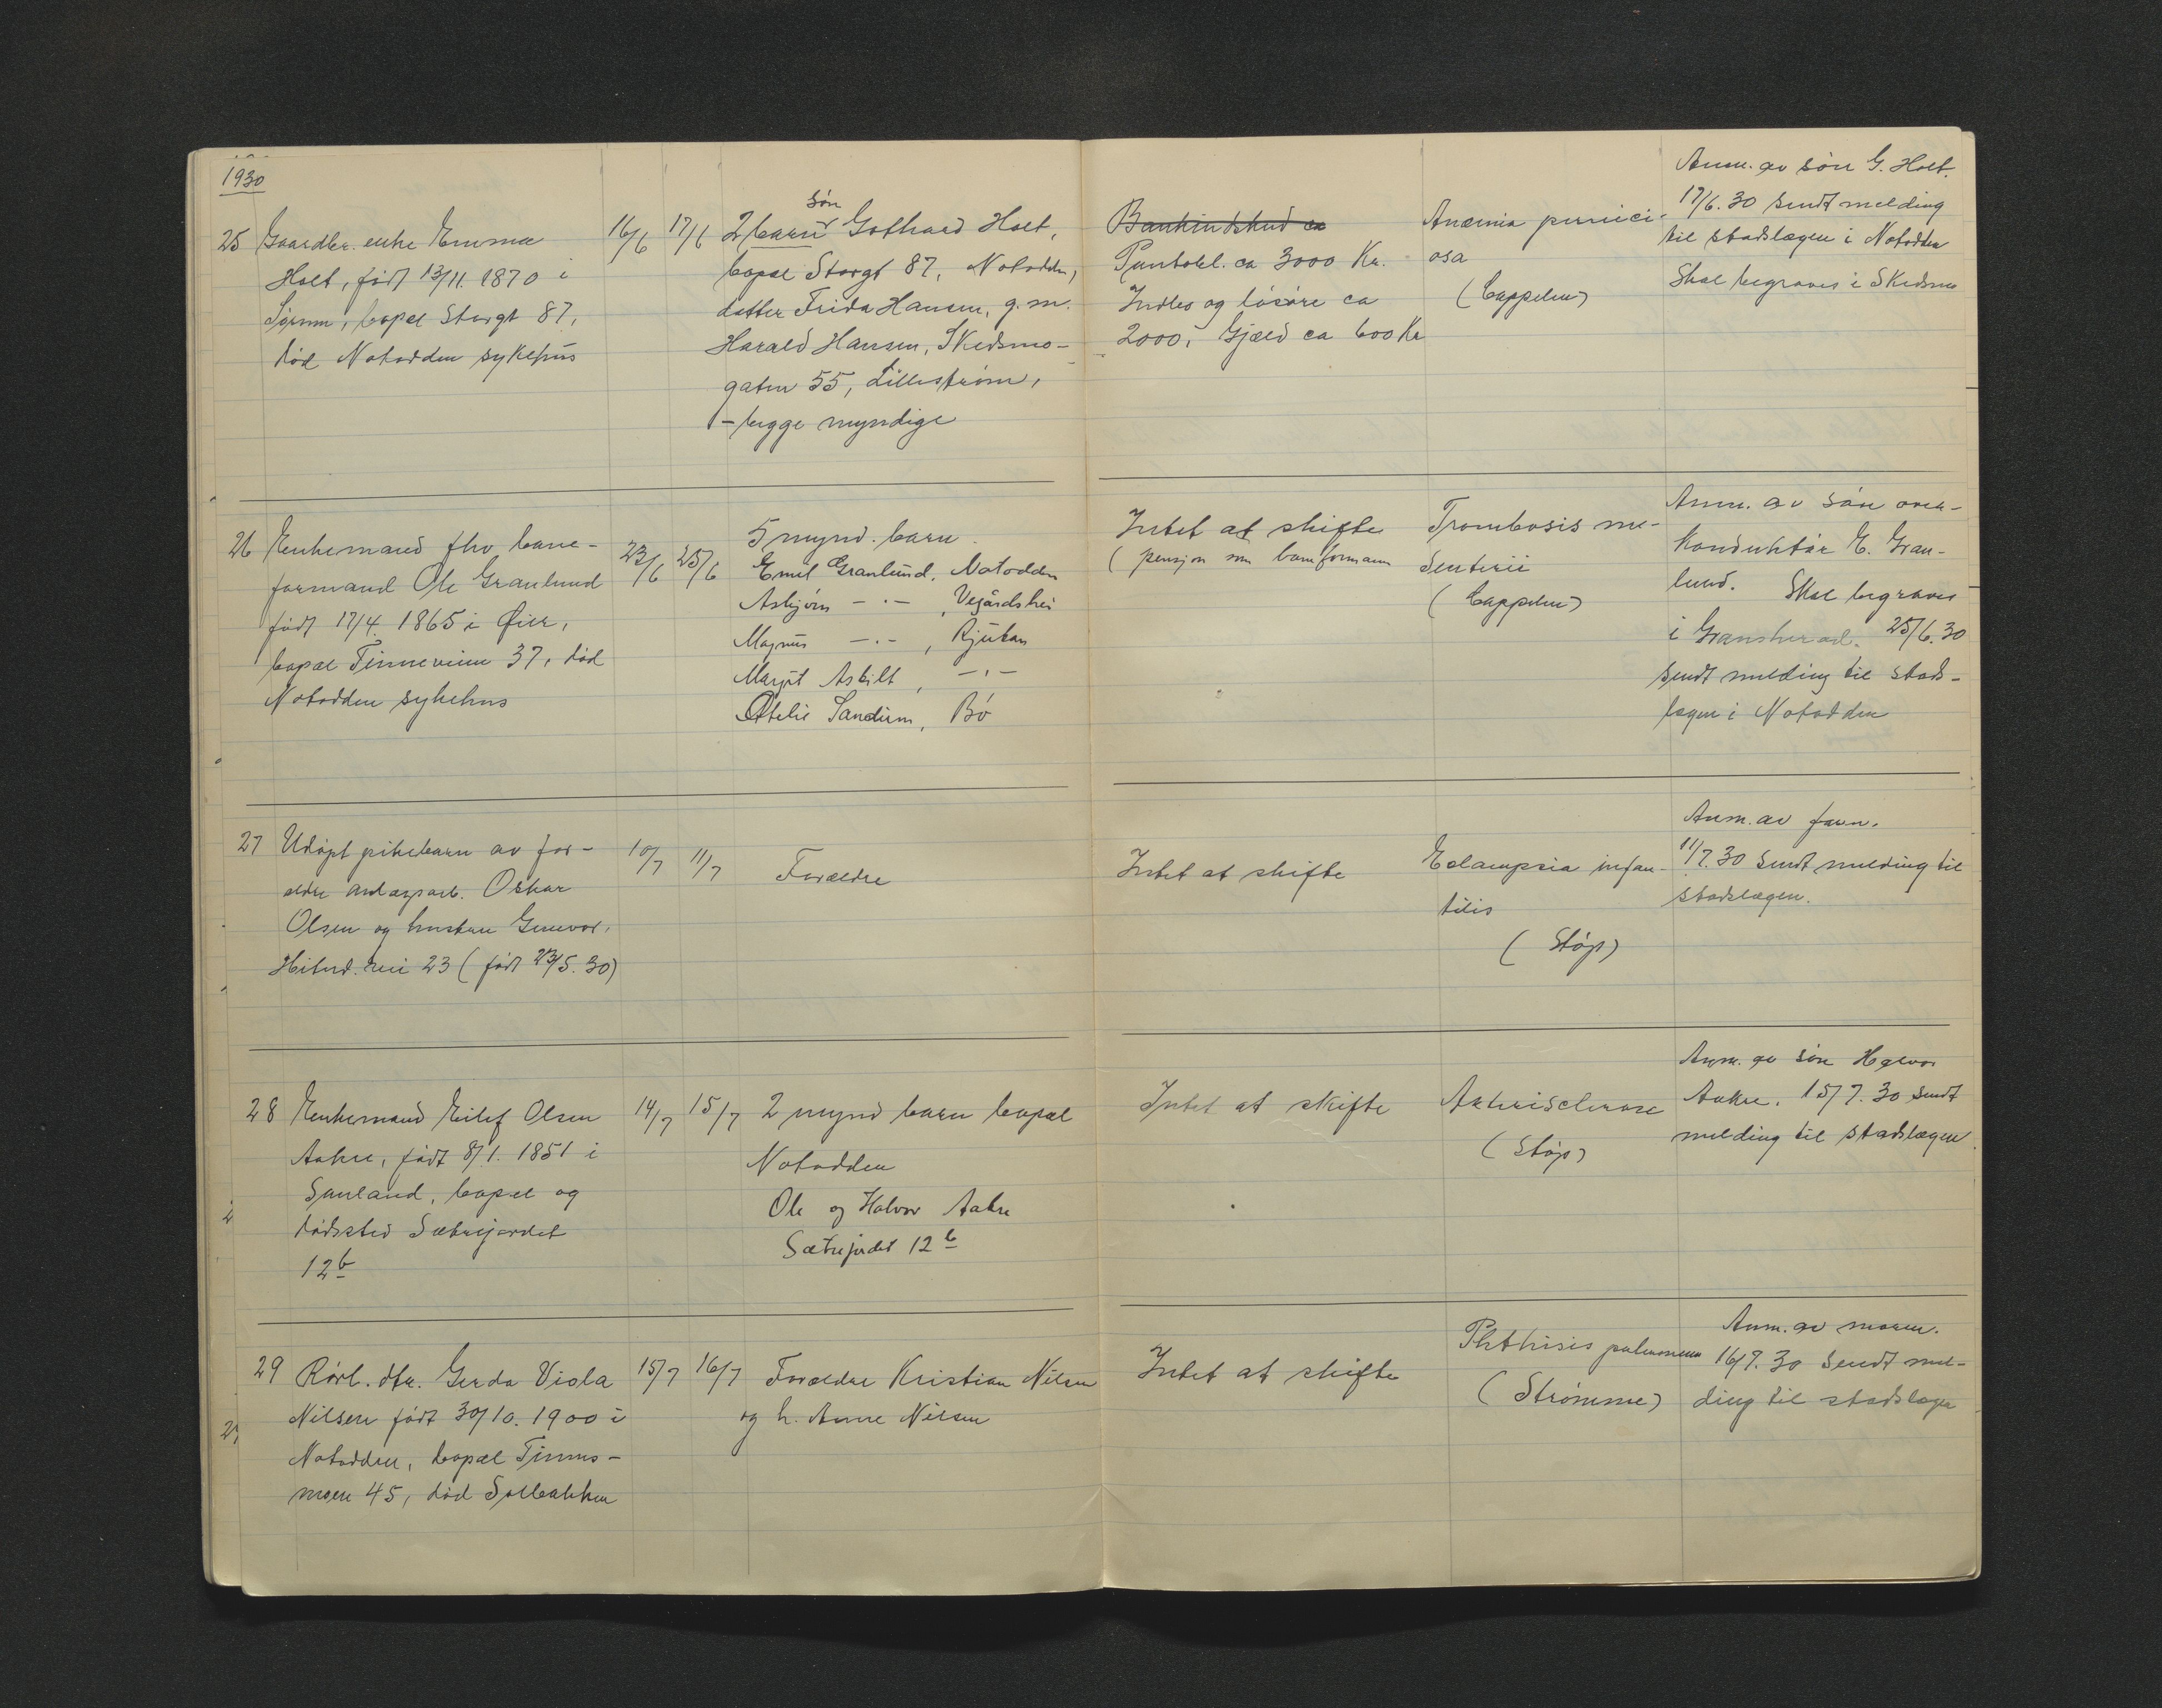 1930
25 Gaardbr. enke Emma
Holt, født 13/11. 1870 i
Sørum, bopæl Storgt 87,
død Notodden sykehus
16/6
17/6
søn
2 barn Gothard Holt,
bopæl Storgt 87, Notodden,
datter Frida Hansen, g.m.
Harald Hansen, Skedsmo-
gaten 55, Lillestrøm,
- begge myndige
Bankindskud ca
Pantobl. ca 3000 Kr.
Indbo og løsøre ca
2000, Gjæld ca 600 Kr
Anæmia pernici-
osa
(Cappelen)
Anm. av søn G. Holt.
17/6. 30 sendt melding
til stadslægen i Notodden
Skal begraves i Skedsmo
26 Enkemand fhv bane-
formand Ole Granlund
født 17/4. 1865 i Øier,
bopæl Tinneveien 37, død
Notodden sykehus
23/6
25/6
5 mynd. barn.
Emil Granlund, Notodden
Asbjørn -"- , Vegårdshei
Magnus -"- , Rjukan
Margit Asbilt, -"-
Otelie Sandum, Bø
Intet at skifte
(pensjon som baneformann
Trombosis me-
senterii
(Cappelen)
Anm. av søn over-
konduktør E. Gran-
lund. Skal begraves
i Gransherad. 25/6. 30
sendt melding til stads-
lægen i Notodden
27 Udøpt pikebarn av for-
ældre anlægsarb. Oskar
Olsen og hustru Gunvor,
Hitterd.vei 23 (født 23/5. 30)
10/7
11/7
Forældre
Intet at skifte
Eclampsia infan-
tilis
(Støp)
Anm. av faren.
11/7. 30 sendt melding til
stadslægen.
28 Enkemand Eilef Olsen
Aakre, født 8/1. 1851 i
Sauland, bopæl og
dødssted Sætrejordet
12b
14/7
15/7
2 mynd barn bopæl
Notodden
Ole og Halvor Aakre
Sætrejordet 12b
Intet at skifte
Arterisclerose
(Støp)
Anm. av søn Halvor
Aakre. 15/7. 30 sendt
melding til stadslægen.
29 Rørl. dtr. Gerda Viola
Nilsen født 30/10. 1900 i
Notodden, bopæl Tinnes-
moen 45, død Solbakken
15/7
16/7
Forældre Kristian Nilsen
og h. Anne Nilsen
Intet at skifte
Phthisis pulmonum
(Strømme)
Anm. av moren.
16/7. 30 sendt mel-
ding til stadslægen